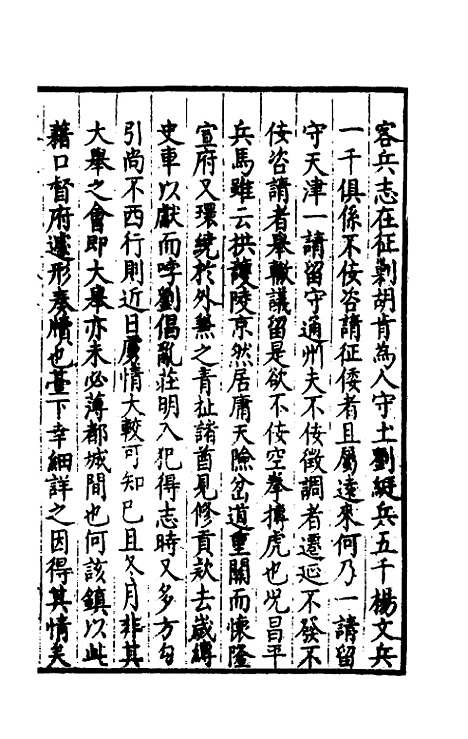 客兵志在征剿胡肯為人守土劉綎兵五千楊文兵
一千俱係不佞咨請征倭者且屬遠來何乃一請留
守天津一請留守通州夫不佞徵調者遷延不發不
佞咨請者舉輙議留是欲不佞空拳搏虎也况昌平
兵馬雖云拱護陵京然居庸天險岔道重關而懷隆
宣府又環繞於外無之青祉諸酋見修貢欵去歲縛
史車以獻而哱劉倡亂莊明入犯得志時又多方勾
引尚不西行則近日虜情大較可知已且冬月非其
大舉之會即大舉亦未必薄都城間也何該鎮以此
藉口督府遽形奏牘也臺下幸細詳之因得其情矣